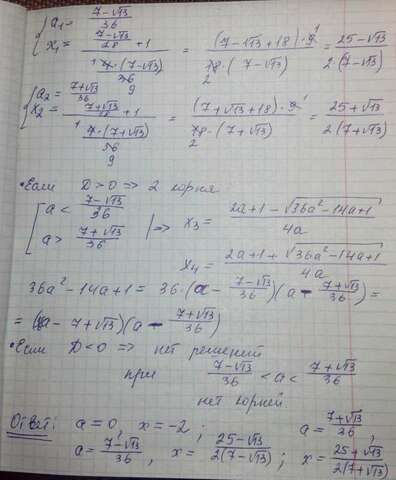 { a₁ = (7-√13)/36
x₁ = ((7-√13)/18 + 1)/(4·(7-√13)/36) = ((7-√13+18)·9)/(18·(7-√13)) = (25-√13)/(2(7-√13))
{ a₂ = (7+√13)/36
x₂ = ((7+√13)/18 + 1)/(4·(7+√13)/36) = ((7+√13+18)·9)/(18·(7+√13)) = (25+√13)/(2(7+√13))
• Если D>0 => 2 корня:
[ a < (7-√13)/36
a > (7+√13)/36 | => x₃ = (2a+1-√(36a²-14a+1))/(4a)
x₄ = (2a+1+√(36a²-14a+1))/(4a)
36a²-14a+1 = 36·(a - (7-√13)/36)(a - (7+√13)/36) =
= (36a-7+√13)(a - (7+√13)/36)
• Если D<0 => нет решений
при (7-√13)/36 < a < (7+√13)/36
нет корней
Ответ: a=0, x=-2; a = (7+√13)/36,
a = (7-√13)/36, x = (25-√13)/(2(7-√13)); x = (25+√13)/(2(7+√13))